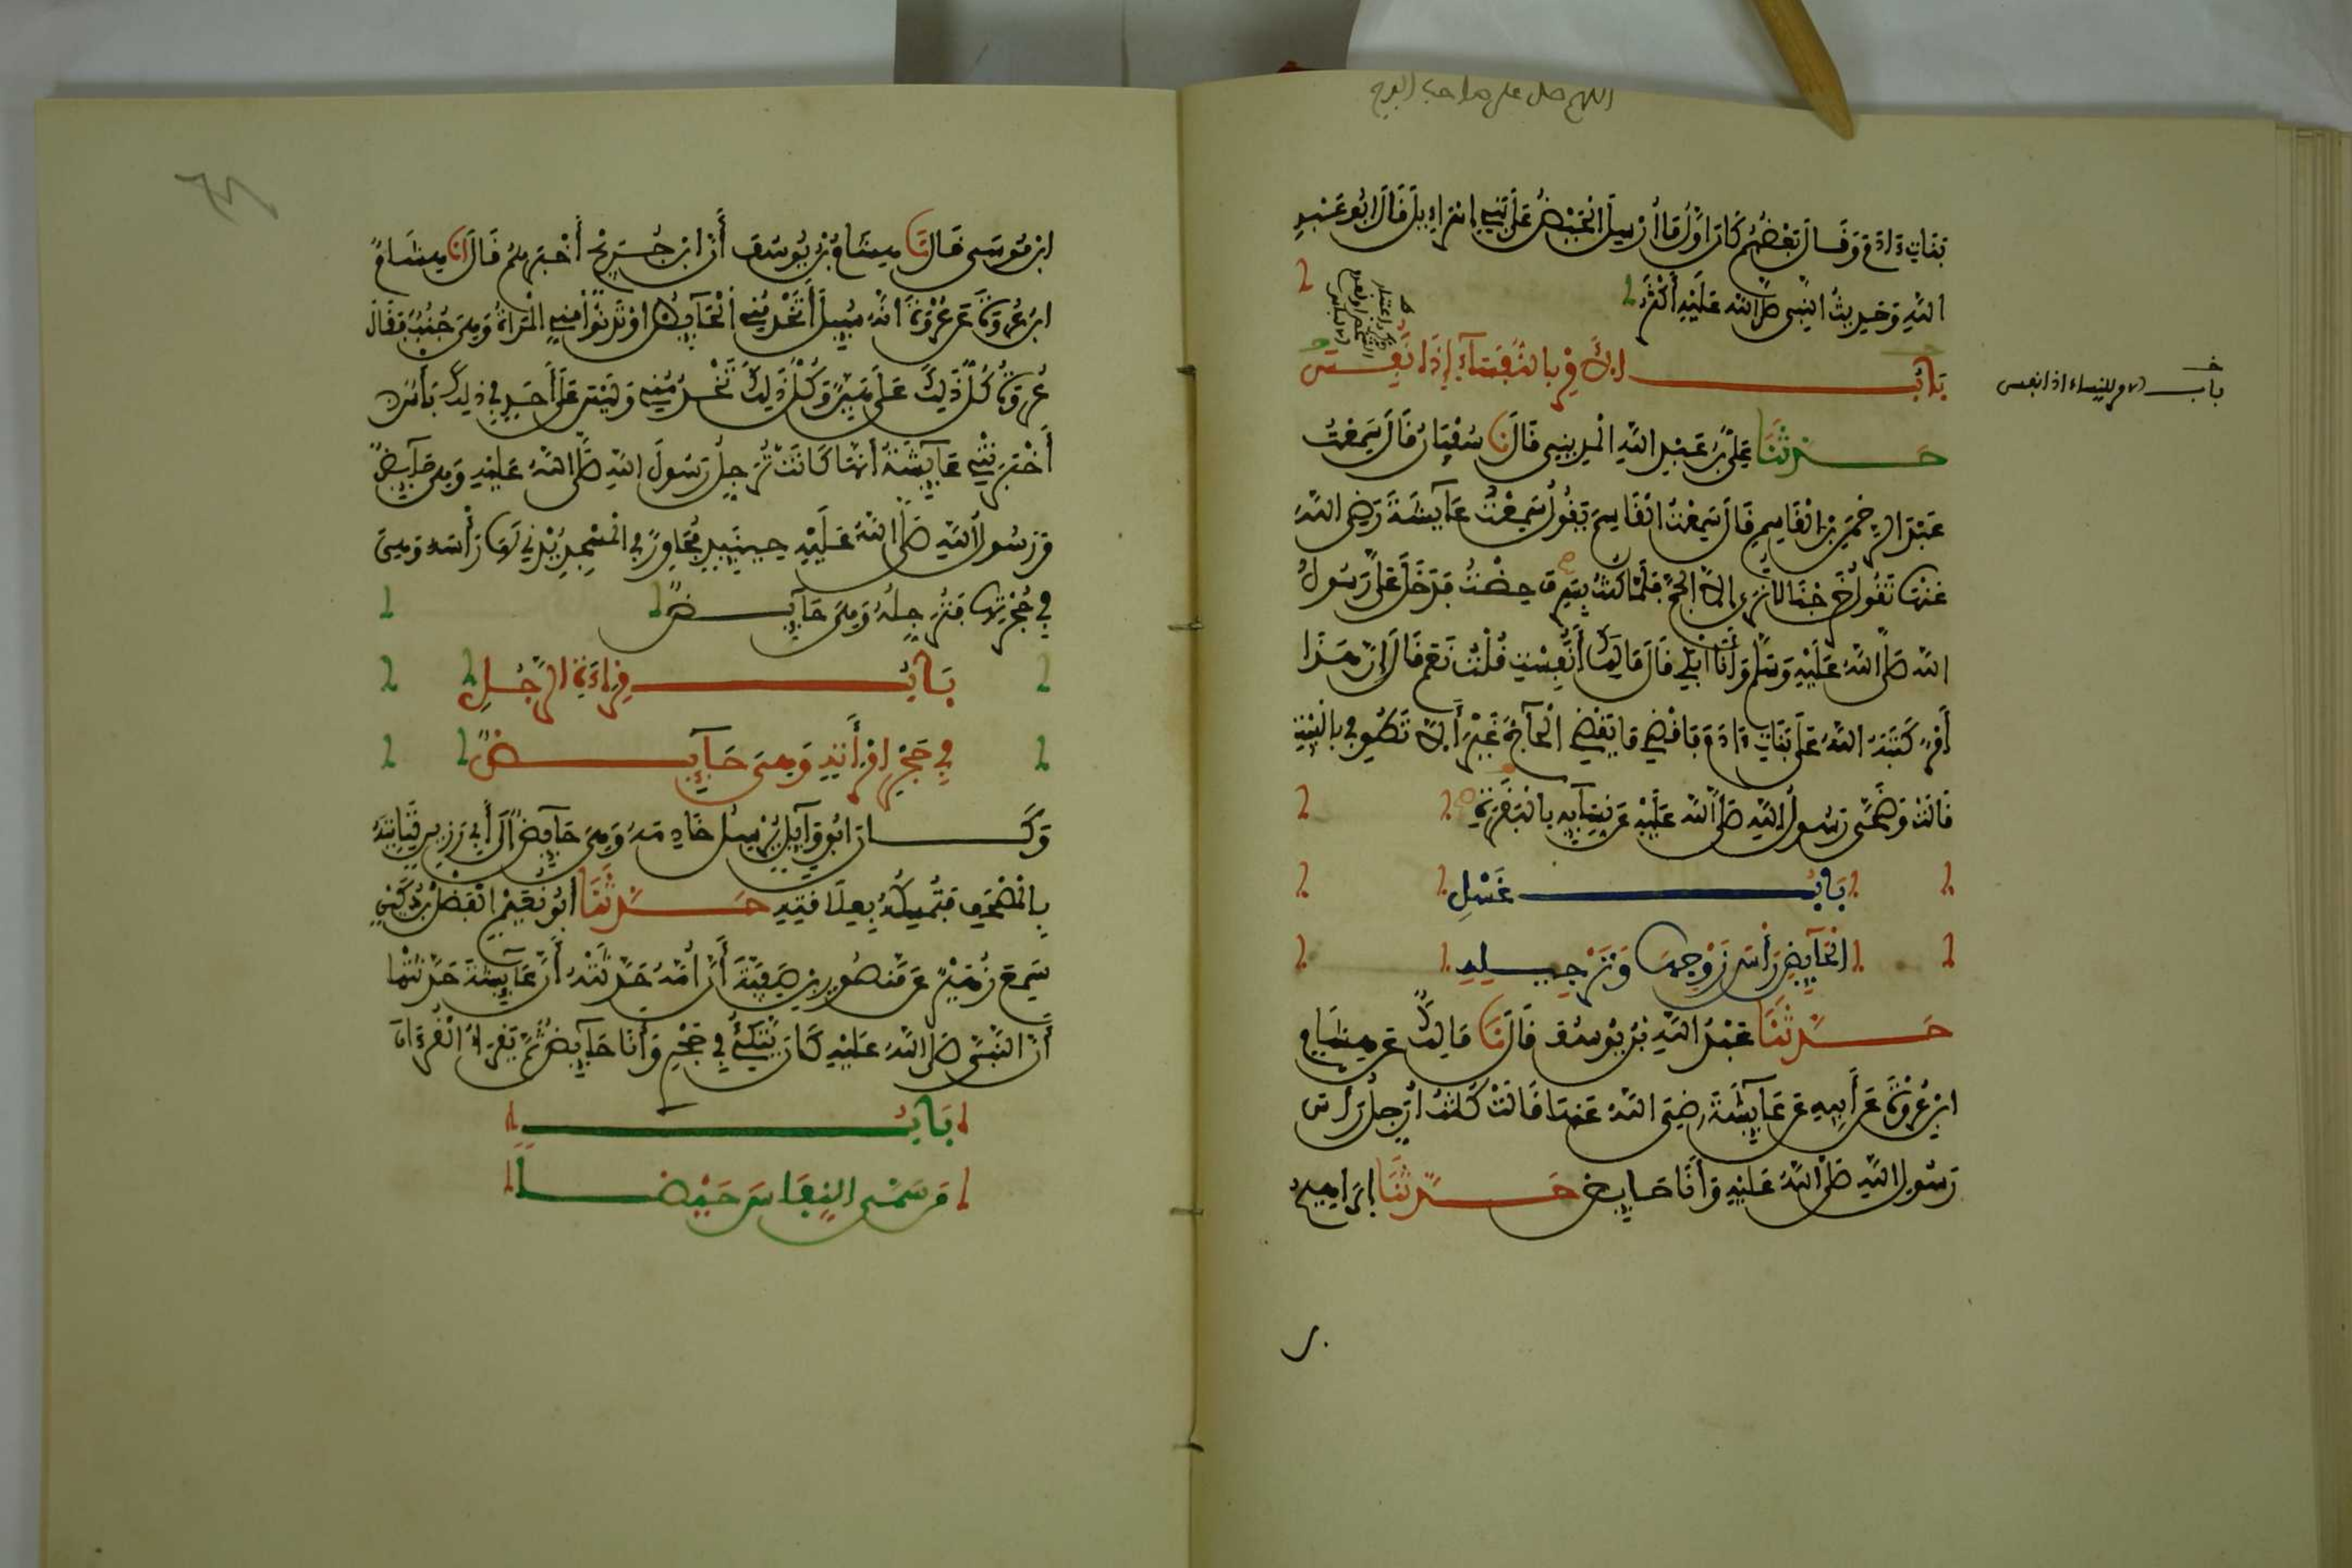 اللهم صل على صاحب
بَنَاتِ ءَادَمَ وَقَالَ بَعْضُهُمْ كَانَ أَوَّلُ مَا أُرْسِلَ الْحَيْضُ عَلَى بَنِي إِسْرَاءِيلَ قَالَ أَبُو عَبْدِ
اللَّهِ وَحَدِيثُ النَّبِيِّ صَلَّى اللَّهُ عَلَيْهِ أَكْثَرُ
بَابُ الأَمْرِ بِالنُّفَسَاءِ إِذَا نَفِسَتْ
باب الامر للنساء اذا نفسن
حَدَّثَنَا عَلِيُّ بْنُ عَبْدِ اللَّهِ الْمَدِينِيُّ قَالَ نَا سُفْيَانُ قَالَ سَمِعْتُ
عَبْدَ الرَّحْمَنِ بْنَ الْقَاسِمِ قَالَ سَمِعْتُ الْقَاسِمَ يَقُولُ سَمِعْتُ عَائِشَةَ رَضِيَ اللَّهُ
عَنْهَا تَقُولُ خَرَجْنَا لَا نَرَى إِلَّا الْحَجَّ فَلَمَّا كُنْتُ بِسَرِفَ حِضْتُ فَدَخَلَ عَلَيَّ رَسُولُ
اللَّهِ صَلَّى اللَّهُ عَلَيْهِ وَسَلَّمَ وَأَنَا أَبْكِي فَقَالَ مَا لَكِ أَنَفِسْتِ قُلْتُ نَعَمْ قَالَ إِنَّ هَذَا
أَمْرٌ كَتَبَهُ اللَّهُ عَلَى بَنَاتِ ءَادَمَ فَاقْضِي مَا يَقْضِي الْحَاجُّ غَيْرَ أَلَّا تَطُوفِي بِالْبَيْتِ
قَالَتْ وَضَحَّى رَسُولُ اللَّهِ صَلَّى اللَّهُ عَلَيْهِ عَنْ نِسَائِهِ بِالْبَقَرَةِ
بَابُ غَسْلِ
الْحَائِضِ رَأْسَ زَوْجِهَا وَتَرْجِيلِهِ
حَدَّثَنَا عَبْدُ اللَّهِ بْنُ يُوسُفَ قَالَ نَا مَالِكٌ عَنْ هِشَامِ
ابْنِ عُرْوَةَ عَنْ أَبِيهِ عَنْ عَائِشَةَ رَضِيَ اللَّهُ عَنْهَا قَالَتْ كُنْتُ أُرَجِّلُ رَأْسَ
رَسُولِ اللَّهِ صَلَّى اللَّهُ عَلَيْهِ وَأَنَا حَائِضٌ حَدَّثَنَا إِبْرَاهِيمُ
ابْنُ مُوسَى قَالَ نَا هِشَامُ بْنُ يُوسُفَ أَنَّ ابْنَ جُرَيْجٍ أَخْبَرَهُمْ قَالَ أَنَا هِشَامُ
ابْنُ عُرْوَةَ عَنْ عُرْوَةَ أَنَّهُ سُئِلَ أَتَخْدُمُنِي الْحَائِضُ أَوْ تَدْنُو مِنِّي الْمَرْأَةُ وَهِيَ جُنُبٌ فَقَالَ
عُرْوَةُ كُلُّ ذَلِكَ عَلَيَّ هَيِّنٌ وَكُلُّ ذَلِكَ تَخْدُمُنِي وَلَيْسَ عَلَى أَحَدٍ فِي ذَلِكَ بَأْسٌ
أَخْبَرَتْنِي عَائِشَةُ أَنَّهَا كَانَتْ تُرَجِّلُ رَسُولَ اللَّهِ صَلَّى اللَّهُ عَلَيْهِ وَهِيَ حَائِضٌ
وَرَسُولُ اللَّهِ صَلَّى اللَّهُ عَلَيْهِ حِينَئِذٍ مُجَاوِرٌ فِي الْمَسْجِدِ يُدْنِي لَهَا رَأْسَهُ وَهِيَ
فِي حُجْرَتِهَا فَتُرَجِّلُهُ وَهِيَ حَائِضٌ
بَابُ قِرَاءَةِ الرَّجُلِ
فِي حَجْرِ امْرَأَتِهِ وَهِيَ حَائِضٌ
وَكَانَ أَبُو وَائِلٍ يُرْسِلُ خَادِمَهُ وَهِيَ حَائِضٌ إِلَى أَبِي رَزِينٍ فَتَأْتِيهِ
بِالْمُصْحَفِ فَتُمْسِكُهُ بِعِلَاقَتِهِ حَدَّثَنَا أَبُو نُعَيْمٍ الْفَضْلُ بْنُ دُكَيْنٍ
سَمِعَ زُهَيْرًا عَنْ مَنْصُورِ بْنِ صَفِيَّةَ أَنَّ أُمَّهُ حَدَّثَتْهُ أَنَّ عَائِشَةَ حَدَّثَتْهَا
أَنَّ النَّبِيَّ صَلَّى اللَّهُ عَلَيْهِ كَانَ يَتَّكِئُ فِي حَجْرِي وَأَنَا حَائِضٌ ثُمَّ يَقْرَأُ الْقُرْءَانَ
بَابُ
مَنْ سَمَّى النِّفَاسَ حَيْضًا